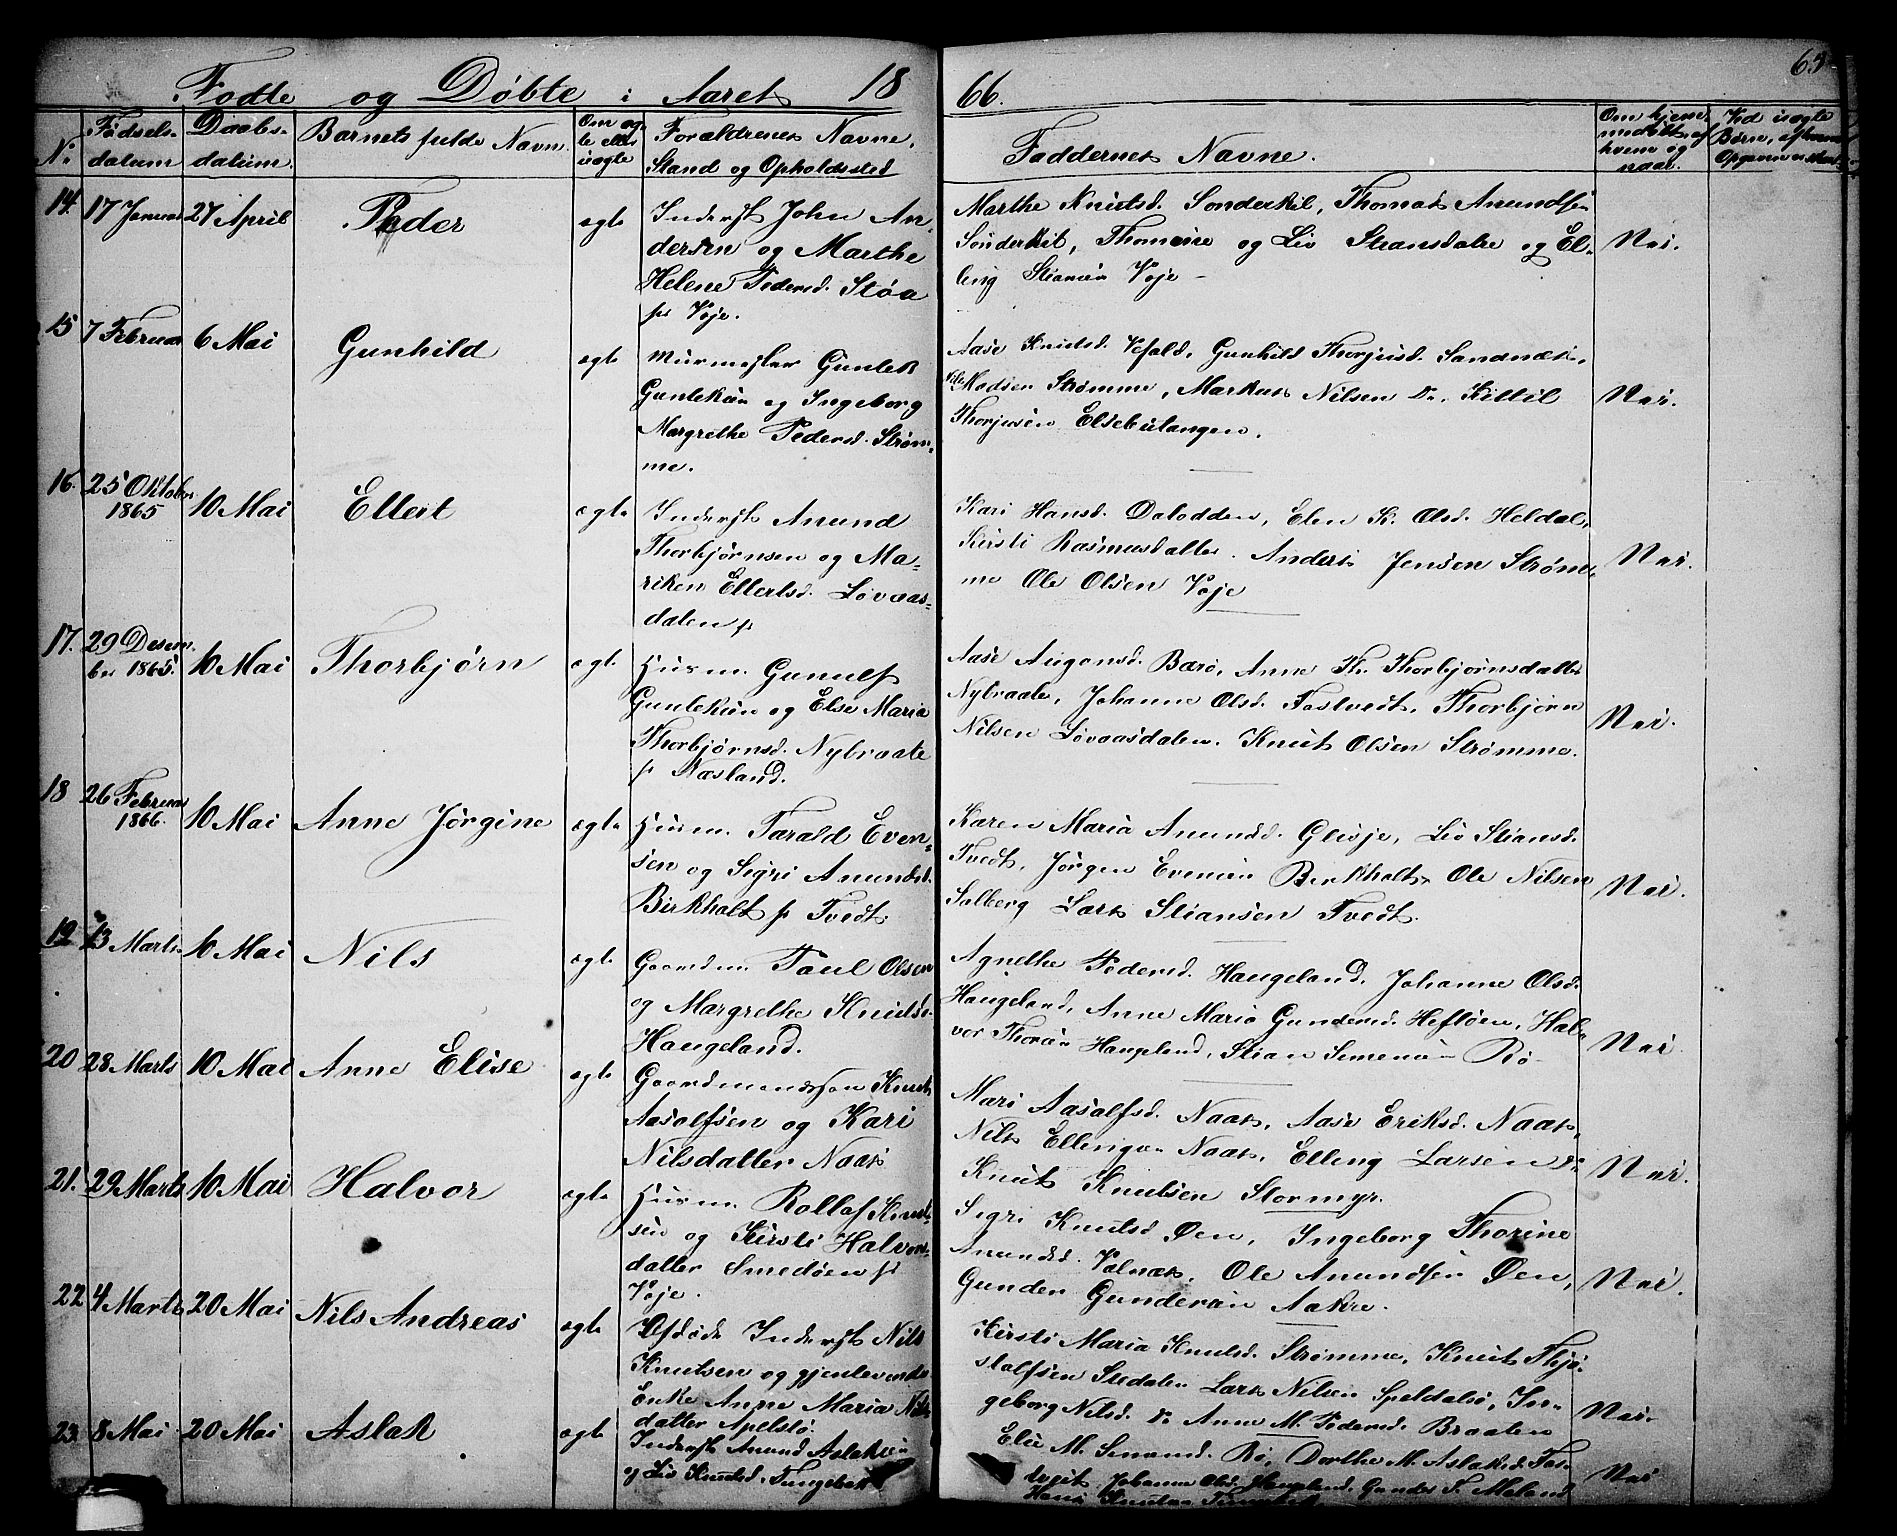 Fødte og Døbte i Aaret 1866.
65
No
Fødsels-datum
Daabs-datum.
Barnets fulde Navn
Om ægte eller uægte
Forældrenes Navne, Stand og Opholdssted
Faddernes Navne.
14. 17 Januar 27 April Peder ægte
Inderst John An-
dersen og Marthe
Helene Pedersd. Støa
p Voje.
Marthe Knutsd. Sonderkil, Thomas Anunds
Sonderkil, Thomine og Liv Stransdalen og El-
ling Voje
Nei.
15 7 Februar 6 Mai Gunhild ægte
Murmester Gunlek
Gunleksen og Ingeborg
Margrethe Pedersd. Strøm-
me.
Aase Knutsd. Gunhild Thorjusd. Sandnæs,
Madsen Strømme, Markus Nilsen Do, Kittil
Thorjusen Elsebutangen.
Nei.
16. 25 Oktober 1865 10 Mai Ellert ægte
Inderst Anund
Thorbjørnsen og Ma-
riken Ellertsd. Løvaas-
dalen p
Kari Hansd. Dalodden, Elen K. Olsd. Heldal,
Kirsti Rasmusdatter. Anders Jensen Strøm-
me Ole Olsen Voje
Nei.
17. 29 Desem-
ber 1865. 10 Mai Thorbjørn ægt.
Husm. Gunulf
Gunleksen og Else Maria
Thorbjørnsd. Nybraate
p Næsland.
Aase Augonsd. Barø, Anne Th. Thorbjørnsdatter
Nybraate, Johanne Olsd. Fostvedt, Thorbjørn
Nilsen Løvaasdalen. Knut Olsen Strømme.
Nei.
18 26 Februar 1866. 10 Mai Anne Jørgine ægte
Husm. Tarald Even-
sen og Sigri Anundsd.
Birkholt p Tvedt.
Karen Maria Anundsd. Gliøje, Liv Stiansd.
Tvedt, Jørgen Evensen Berkholt, Ole Nilsen
Solberg Lars Stiansen Tvedt.
Nei.
19 13 Marts 10 Mai Nils ægte
Gaardm. Paul Olsen
og Margrethe Knutsd.
Haugeland.
Agnethe Pedersd. Haugeland, Johanne Olsd.
Haugeland, Anne Maria Gundersd. Hefløen, Hal-
vor Thorsen Haugeland, Stian Simensen Rø
Nei.
20 28 Marts 10 Mai Anne Elise ægte
Gaardmandssøn Knut
Aasolfsen og Kari
Nilsdatter Naas
Mari Aasolfsd. Naas, Aase Eriksd. Naas,
Nils Ellingsen Naas, Elling Larsen Do
Knut Knutsen Stormyr.
Nei.
21. 29 Marts 10 Mai Halvor ægte
Husm. Rollof Knut-
sen og Kirsti Halvors-
datter Smedøen p
Voje.
Sigri Knutsd Øen, Ingeborg Thorine
Anundsd. Valnæs. Ole Anundsen Øen,
Gunder Gundersen Aakre.
Nei.
22 4 Marts 20 Mai Nils Andreas ægte
Afdøde Inderst Nils
Knutsen og gjenlevende
Enke Anne Maria Nils-
datter Apelstø.
Kirsti Maria Knutsd. Strømme, Knut Thjo-
stolfsen Stidalen Lars Nilsen Speldalsø, In-
geborg Nilsd. Do Anne M. Pedersd. Braaten
Nei.
23. 8 Mai 20 Mai Aslak ægte
Inderst Anund Aslaksen
og Liv Knutsd. Tangebæk
Elie M. Rø, Dorthe M. Aslaksd. Fos-
tveit Johanne Olsd. Haugeland, Gunder T. Meland
Nei